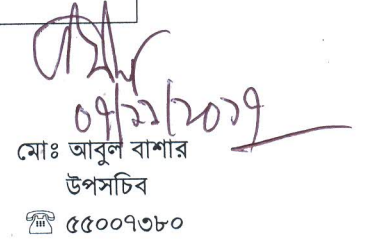 ০৭/১১/২০১৭
মোঃ আবুল বাশার
উপসচিব
☎ ৫৫০০৭৩৮০